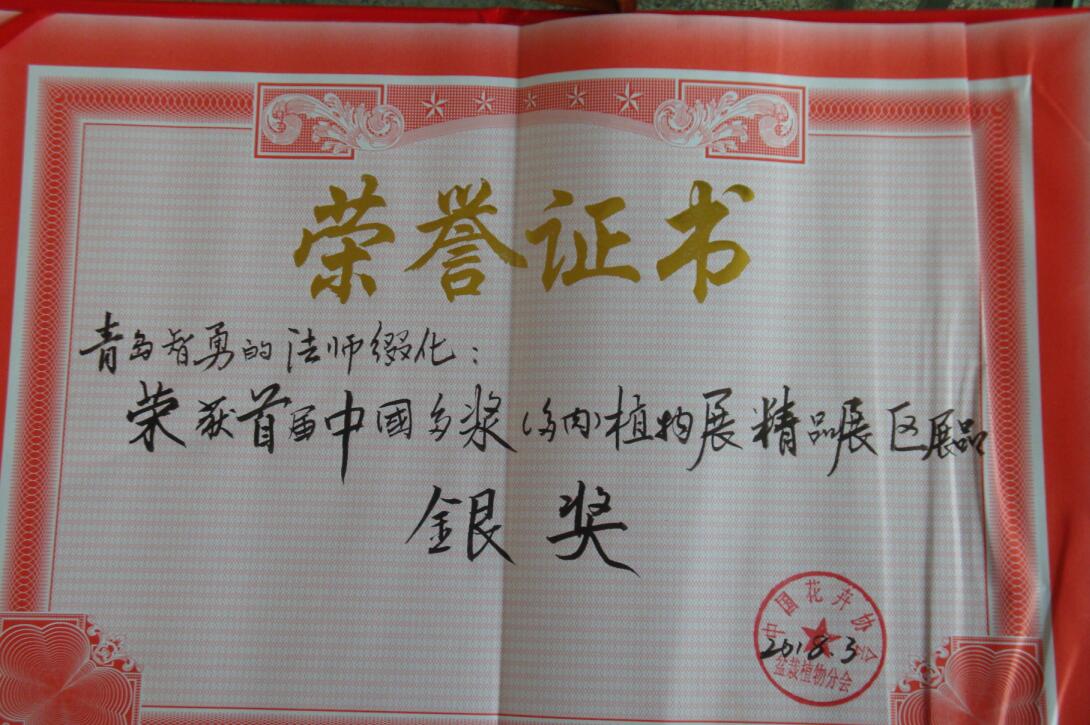 荣誉证书
青岛智勇的法师缀化：
荣获首届中國多浆（多肉）植物展精品展区展品
銀奖
中国花卉协会
2018.3
盆栽植物分会